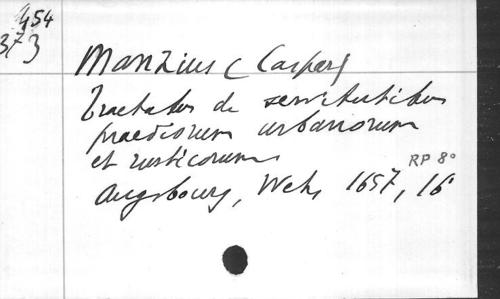 454
373
Manzius (Caspar)
Tractatus de servitutibus
praediorum urbanorum
et rusticorum
RP 8°
Augsbourg, Weh, 1657, 16°